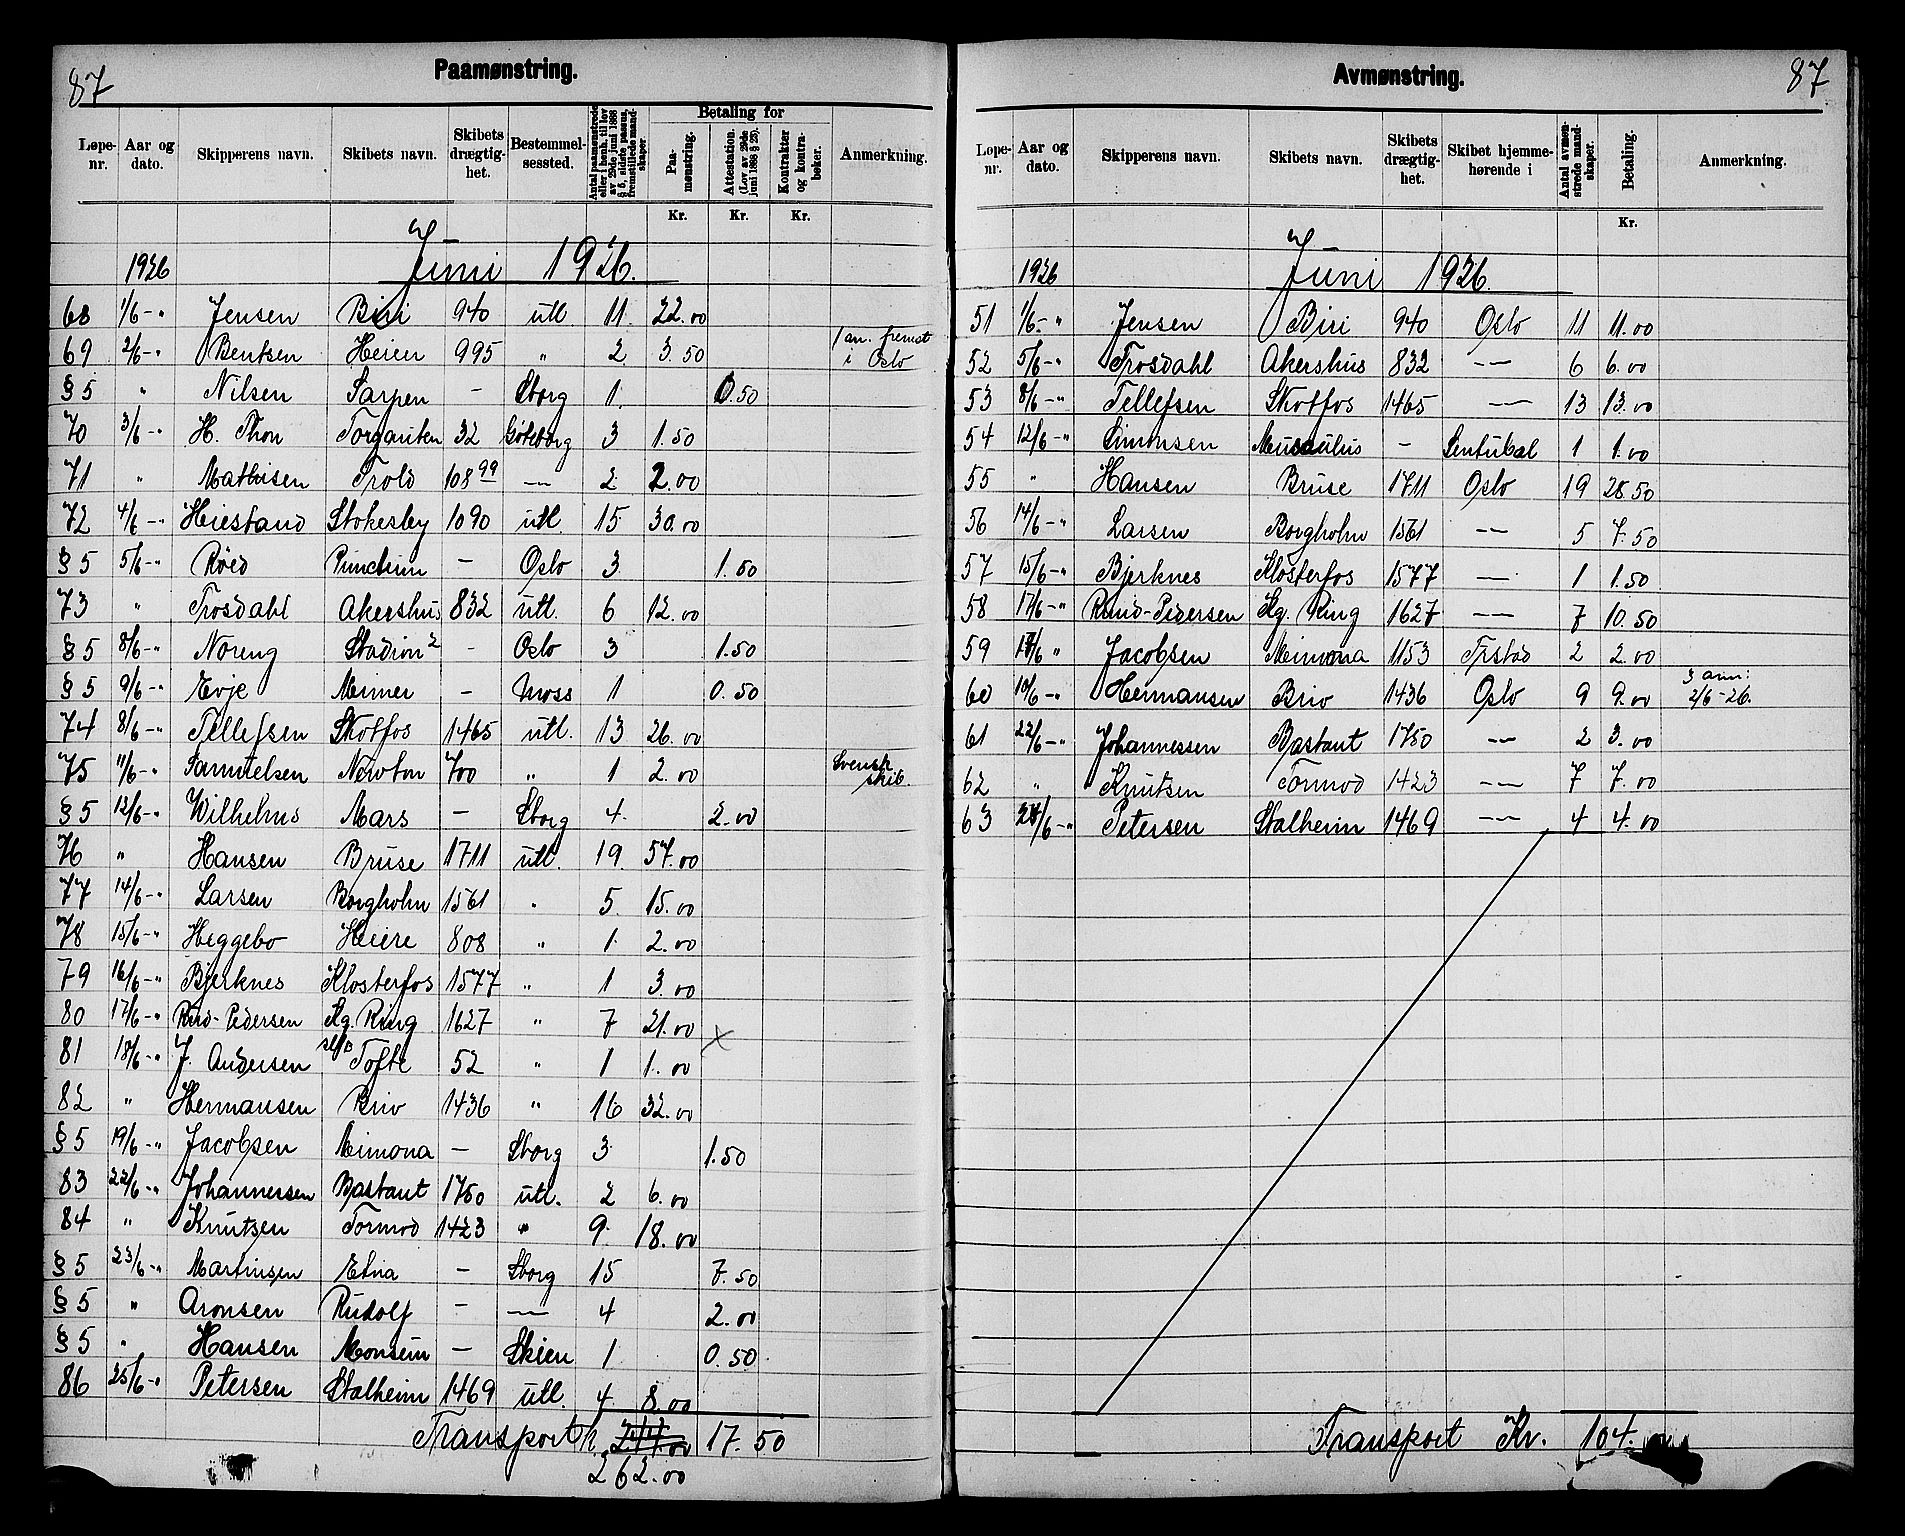 87
Paamønstring.
Løpe-nr. Aar og dato. Skipperens navn. Skibets navn. Skibets drægtig-het. Bestemmel-sessted. Antal paamønstrede eller i henh. til lov av 29de juni 1888 § 5, sidste passus, fremstillede mand-skaper. Betaling for Paa-mønstring. Attestation. (Lov av 29de juni 1888 § 25). Kontrakter og kontra-bøker. Anmerkning.
Kr. Kr. Kr.
1926 Juni 1926.
68 1/6 -" Jensen Biri 940 utl. 11. 22.00
69 2/6 -" Bentsen Heien 995 " 2 3.50 1 an. fremst i Oslo
§5 " Nilsen Sarpen - Sborg 1. 0.50
70 3/6 -" H. Thon Torgauten 32 Göteborg 3 1.50
71 " Mathisen Trold 108 99 -"- 2 2.00
72 4/6 -" Heiestand Stokesby 1090 utl. 15 30.00
§5 5/6 -" Röed Punctum - Oslo 3 1.50
73 " Trosdahl Akershus 832 utl. 6 12.00
§5 8/6 -" Noreng Stadion 2 - Oslo 3 1.50
§5 9/6 -" Evje Meimer - Moss 1 0.50
74 8/6 -" Tellefsen Skotfos 1465 utl. 13 26.00
75 11/6 -" Samuelsen Newton 700 " 1 2.00 Svensk skib.
§5 12/6 -" Wilhelms Mars - Sborg 4. 2.00
76 " Hansen Bruse 1711 utl. 19. 57.00
77 14/6 -" Larsen Borgholm 1561 " 5. 15.00
78 15/6 -" Heggebo Heire 808 " 1 2.00
79 16/6 -" Bjerknes Klosterfos 1577 " 1 3.00
80 17/6 -" Rud-Pedersen Kg. Ring 1627 " 7 21.00 x
81 18/6 -" J. Andersen Tofte 52 " 1 1.00
82 " Hermansen Brio 1436 " 16 32.00
§5 19/6 -" Jacobsen Mimona - Sborg 3 1.50
83 22/6 -" Johannessen Bastant 1750 utl. 2 6.00
84 " Knutsen Tormod 1423 " 9. 18.00
§5 23/6 -" Martinsen Etna - Sborg 15 7.50
§5 " Aronsen Rudolf - -"- 4 2.00
§5 " Hansen Monsein - Skien 1 0.50
86 25/6 -" Petersen Stalheim 1469 utl. 4 8.00
Transport 17.50
262.00
Avmønstring.
87
Løpe-nr. Aar og dato. Skipperens navn. Skibets navn. Skibets drægtig-het. Skibet hjemme-hørende i Antal avmøn-strede mand-skaper. Betaling. Anmerkning.
Kr.
1926 Juni 1926.
51 1/6 -" Jensen Biri 940 Oslo 11 11.00
52 5/6 -" Trosdahl Akershus 832 -"- 6 6.00
53 8/6 -" Tellefsen Skotfos 1465 -"- 13 13.00
54 12/6 -" Simonsen Musculus - Sentubal 1 1.00
55 " Hansen Bruse 1711 Oslo 19 28.50
56 14/6 -" Larsen Borgholm 1561 -"- 5 7.50
57 15/6 -" Bjerknes Klosterfos 1577 -"- 1 1.50
58 17/6 -" Rud-Pedersen Kg. Ring 1627 -"- 7 10.50
59 17/6 " Jacobsen Mimona 1153 Frstad 2 2.00
60 10/6 -" Hermansen Brio 1436 Oslo 9 9.00 3 avm: 2/6-26.
61 22/6 -" Johannessen Bastant 1750 -"- 2 3.00
62 " Knutsen Tormod 1423 -"- 7 7.00
63 24/6 -" Petersen Stalheim 1469 -"- 4 4.00
Transport Kr. 104.